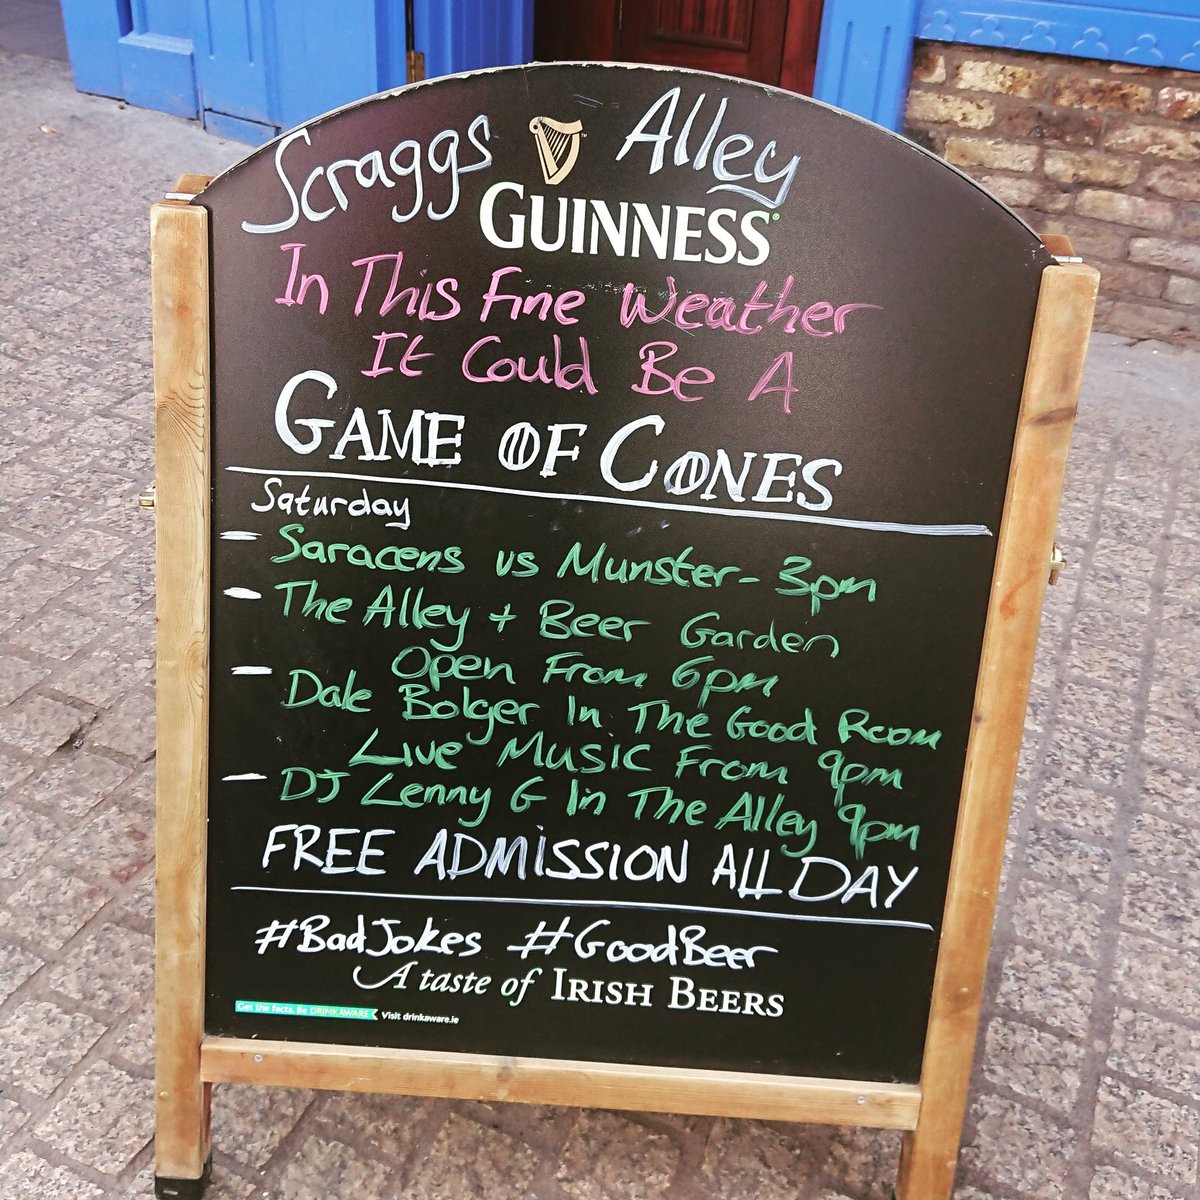 Scraggs Alley
GUINNESS
In This Fine Weather
It Could Be A
GAME OF CONES
Saturday
- Saracens vs Munster - 3pm
- The Alley + Beer Garden
Open From 6pm
- Dale Bolger In The Good Room
Live Music From 9pm
- DJ Lenny G In The Alley 9pm
FREE ADMISSION ALL DAY
#BadJokes #GoodBeer
A taste of IRISH BEERS
Get the facts. Be DRINKAWARE Visit drinkaware.ie